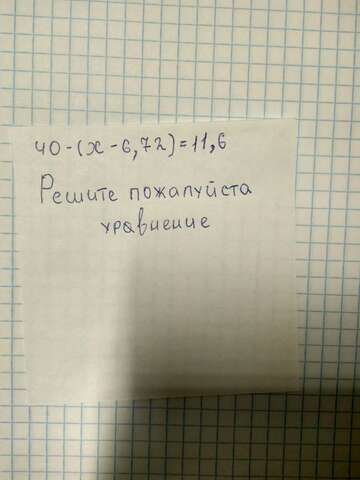 40-(x-6,72)=11,6
Решите пожалуйста
уравнение